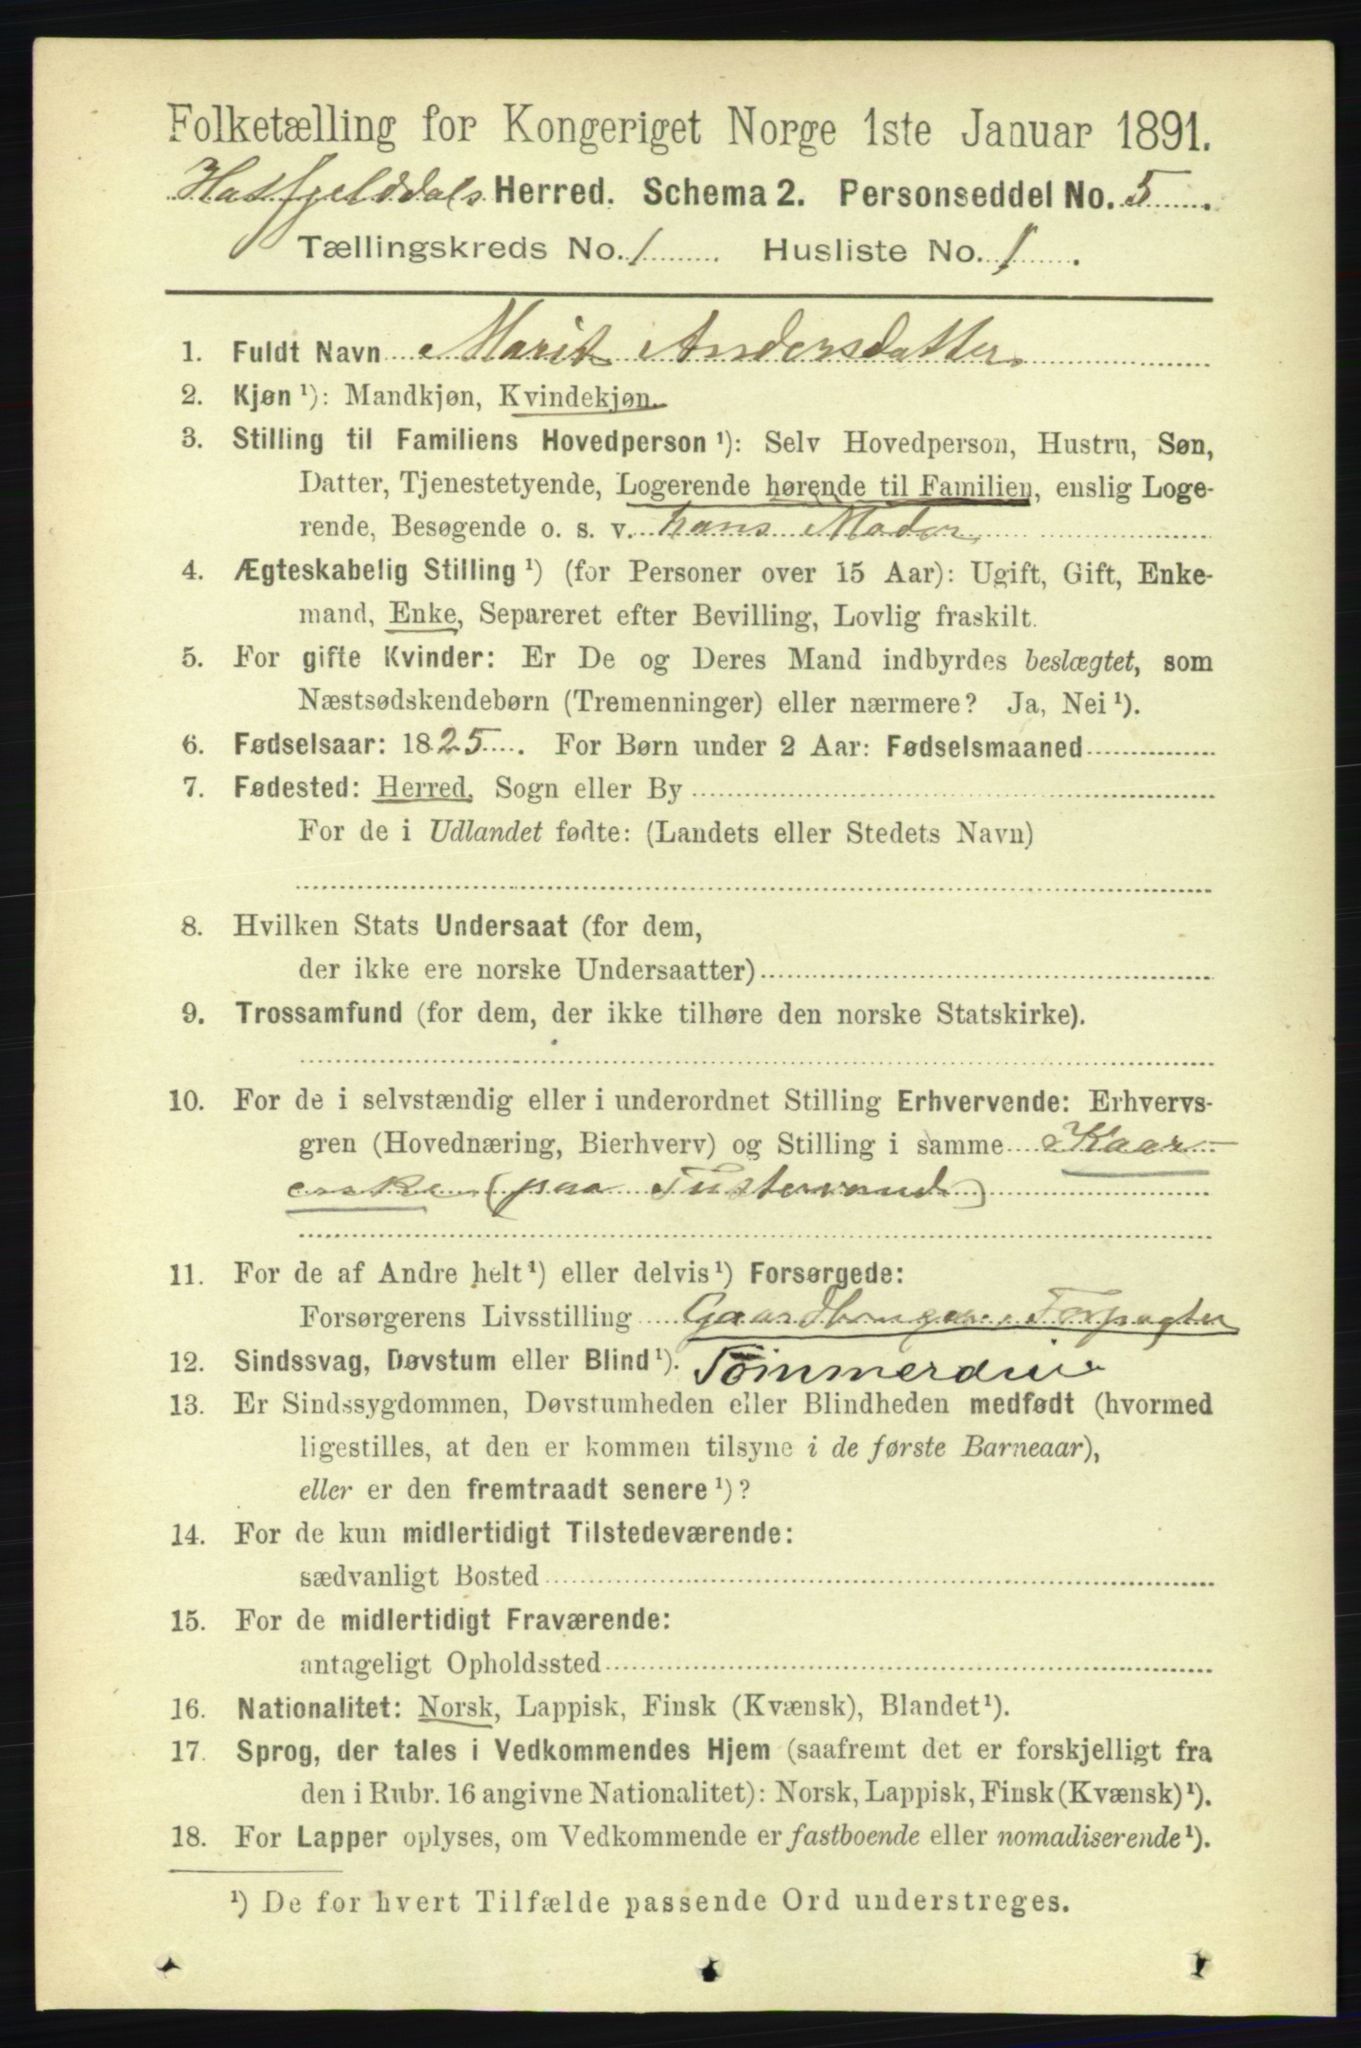 Folketælling for Kongeriget Norge 1ste Januar 1891.
Hatfjelddals Herred. Schema 2. Personseddel No. 5
Tællingskreds No. 1 Husliste No. 1
1. Fuldt Navn Marit Andersdatter
2. Kjøn ¹): Mandkjøn, Kvindekjøn.
3. Stilling til Familiens Hovedperson ¹): Selv Hovedperson, Hustru, Søn,
Datter, Tjenestetyende, Logerende hørende til Familien, enslig Loge-
rende, Besøgende o. s. v. hans Moder
4. Ægteskabelig Stilling ¹) (for Personer over 15 Aar): Ugift, Gift, Enke-
mand, Enke, Separeret efter Bevilling, Lovlig fraskilt.
5. For gifte Kvinder: Er De og Deres Mand indbyrdes beslægtet, som
Næstsødskendebørn (Tremenninger) eller nærmere? Ja, Nei ¹).
6. Fødselsaar: 1825. For Børn under 2 Aar: Fødselsmaaned
7. Fødested: Herred, Sogn eller By
For de i Udlandet fødte: (Landets eller Stedets Navn)
8. Hvilken Stats Undersaat (for dem,
der ikke ere norske Undersaatter)
9. Trossamfund (for dem, der ikke tilhøre den norske Statskirke).
10. For de i selvstændig eller i underordnet Stilling Erhvervende: Erhvervs-
gren (Hovednæring, Bierhverv) og Stilling i samme Kaar-
enke (paa Tustervand)
11. For de af Andre helt ¹) eller delvis ¹) Forsørgede:
Forsørgerens Livsstilling Gaardbruger. Forpagter
12. Sindssvag, Døvstum eller Blind ¹). Tømmerdrift
13. Er Sindssygdommen, Døvstumheden eller Blindheden medfødt (hvormed
ligestilles, at den er kommen tilsyne i de første Barneaar),
eller er den fremtraadt senere ¹)?
14. For de kun midlertidigt Tilstedeværende:
sædvanligt Bosted
15. For de midlertidigt Fraværende:
antageligt Opholdssted
16. Nationalitet: Norsk, Lappisk, Finsk (Kvænsk), Blandet ¹).
17. Sprog, der tales i Vedkommendes Hjem (saafremt det er forskjelligt fra
den i Rubr. 16 angivne Nationalitet): Norsk, Lappisk, Finsk (Kvænsk) ¹).
18. For Lapper oplyses, om Vedkommende er fastboende eller nomadiserende ¹).
¹) De for hvert Tilfælde passende Ord understreges.